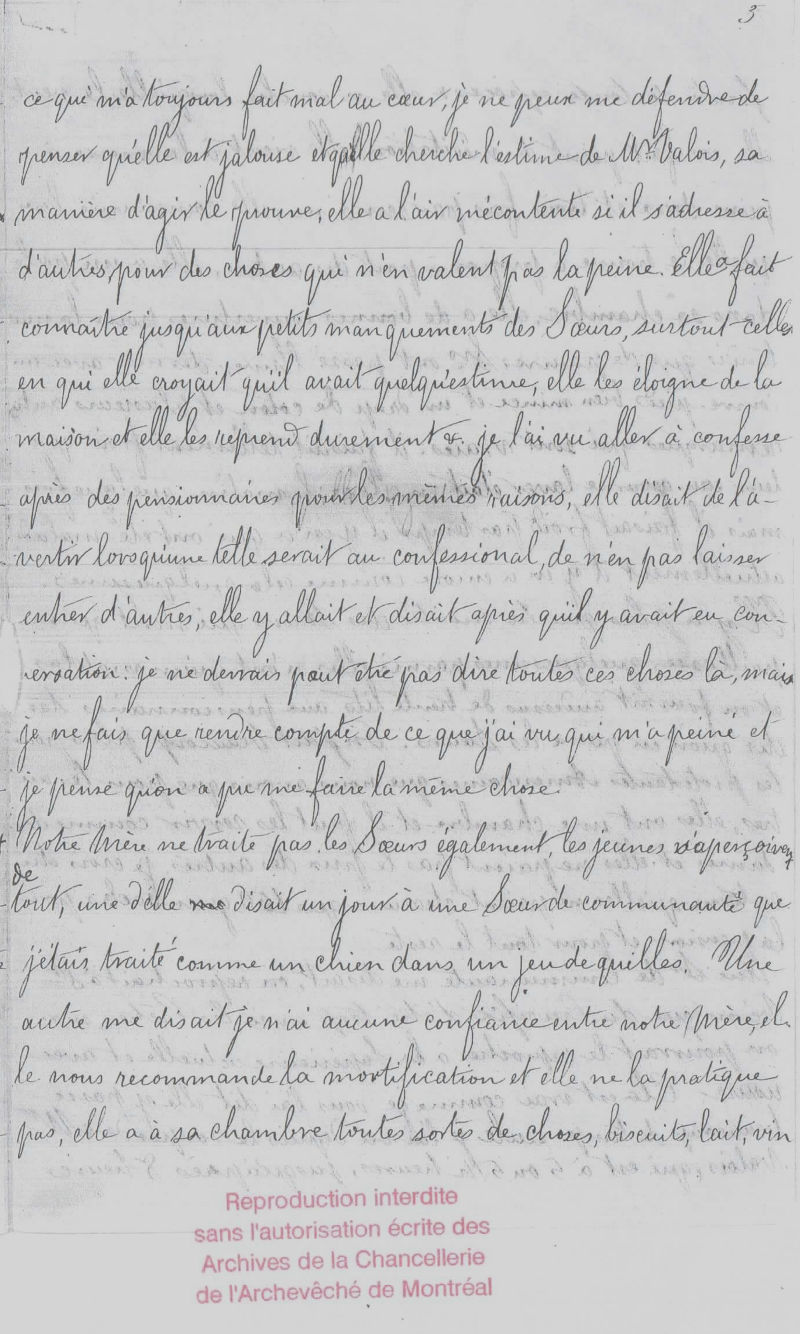 3
ce qui m'a toujours fait mal au cœur, je ne peux me défendre de
penser qu'elle est jalouse et qu'elle cherche l'estime de Mr. Valois, sa
manière d'agir le prouve, elle a l'air mécontente si il s'adresse à
d'autres, pour des choses qui n'en valent pas la peine. Elle a fait
connaître jusqu'aux petits manquements des Sœurs, surtout celles
en qui elle croyait qu'il avait quelqu'estime, elle les éloigne de la
maison et elle les reprend durement &. je l'ai vu aller à confesse
après des pensionnaires pour les mêmes raisons, elle disait de l'a-
vertir lorsqu'une telle serait au confessional, de n'en pas laisser
entrer d'autres, elle y allait et disait après qu'il y avait eu con-
versation: je ne devrais peut être pas dire toutes ces choses là, mais
je ne fais que rendre compte de ce que j'ai vu qui m'a peiné et
je pense qu'on a pu me faire la même chose.
Notre Mère ne traite pas les Sœurs également, les jeunes s'aperçoivent
de
tout, une d'elle disait un jour à une Sœur de communauté que
j'étais traité comme un chien dans un jeu de quilles. Une
autre me disait je n'ai aucune confiance entre notre Mère, el-
le nous recommande la mortification et elle ne la pratique
pas, elle a à sa chambre toutes sortes de choses, biscuits, lait, vin
Reproduction interdite
sans l'autorisation écrite des
Archives de la Chancellerie
de l'Archevêché de Montréal